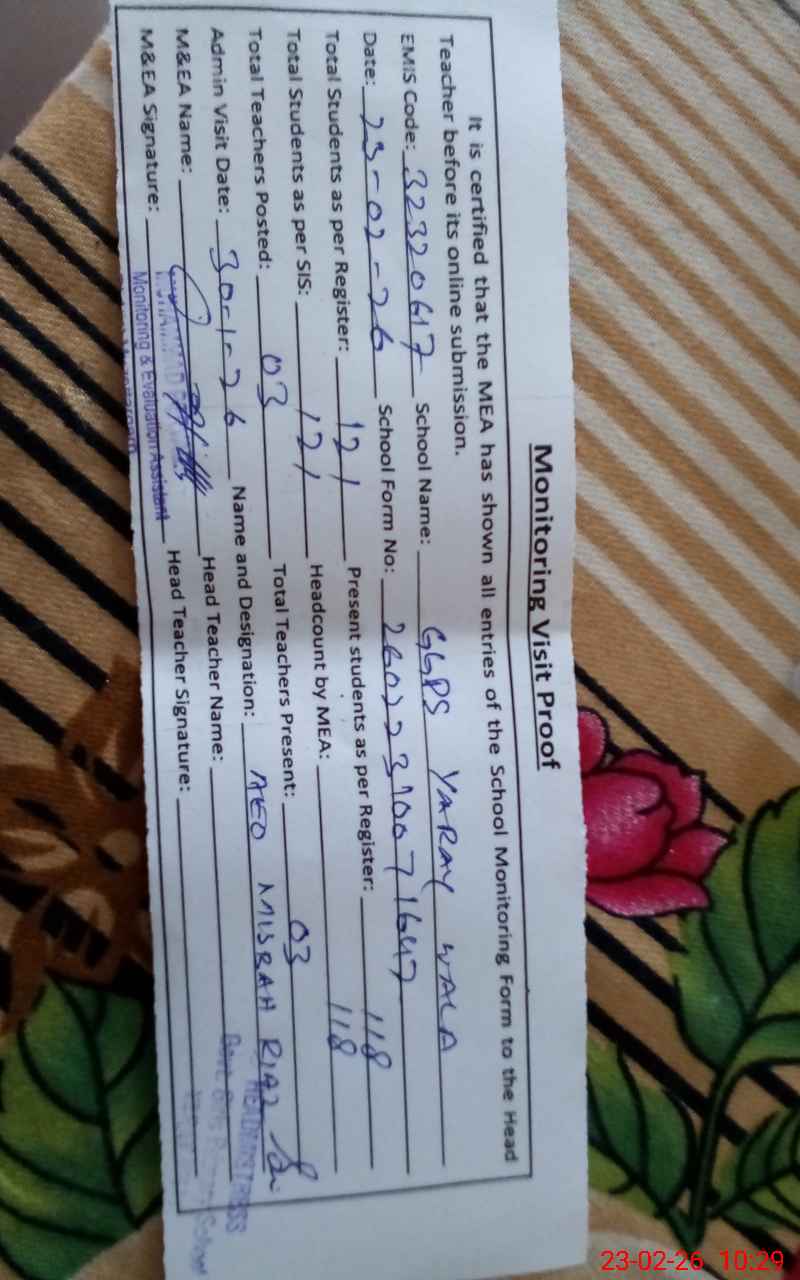 Monitoring Visit Proof
It is certified that the MEA has shown all entries of the School Monitoring Form to the Head
Teacher before its online submission.
EMIS Code: 32320617 School Name: GGPS YARAY WALA
Date: 23-02-26 School Form No: 2602231007 1647
Total Students as per Register: 121 Present students as per Register: 118
Total Students as per SIS: 121 Headcount by MEA: 118
Total Teachers Posted: 03 Total Teachers Present: 03
Admin Visit Date: 30-1-26 Name and Designation: AEO MISBAH RIAZ
M&EA Name: Head Teacher Name:
M&EA Signature: Head Teacher Signature:
Monitoring & Evaluation Assistant
HEADMISTRESS
School
23-02-26 10:29